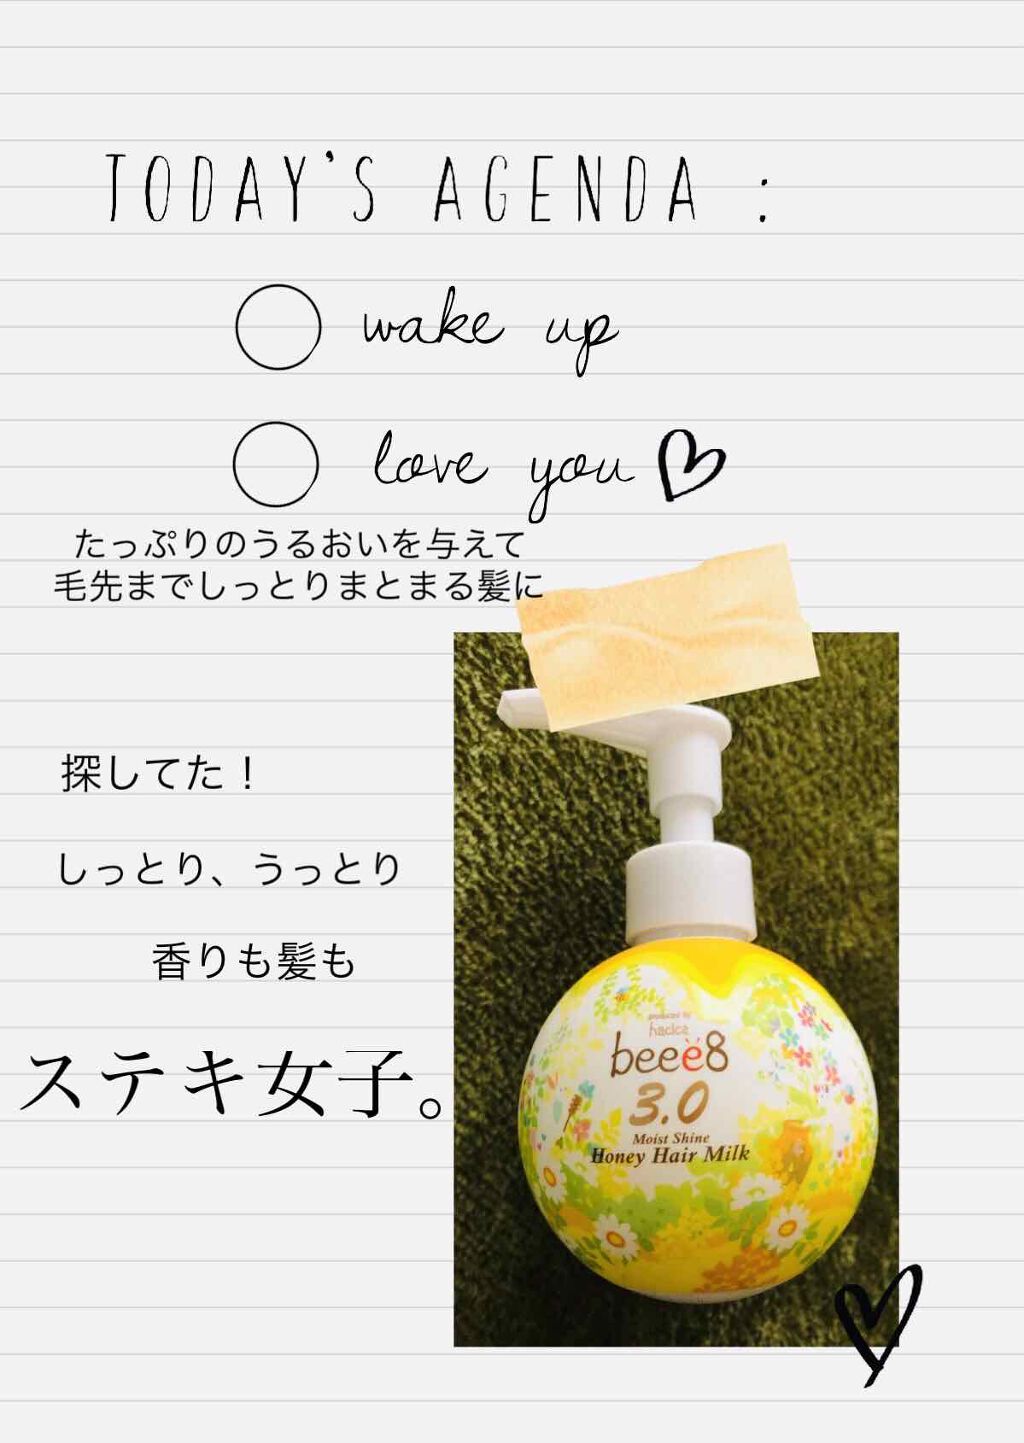 TODAY'S AGENDA :
wake up
love you
たっぷりのうるおいを与えて
毛先までしっとりまとまる髪に
探してた！
しっとり、うっとり
香りも髪も
ステキ女子。
produced by
hacica
beee8
3.0
Moist Shine
Honey Hair Milk